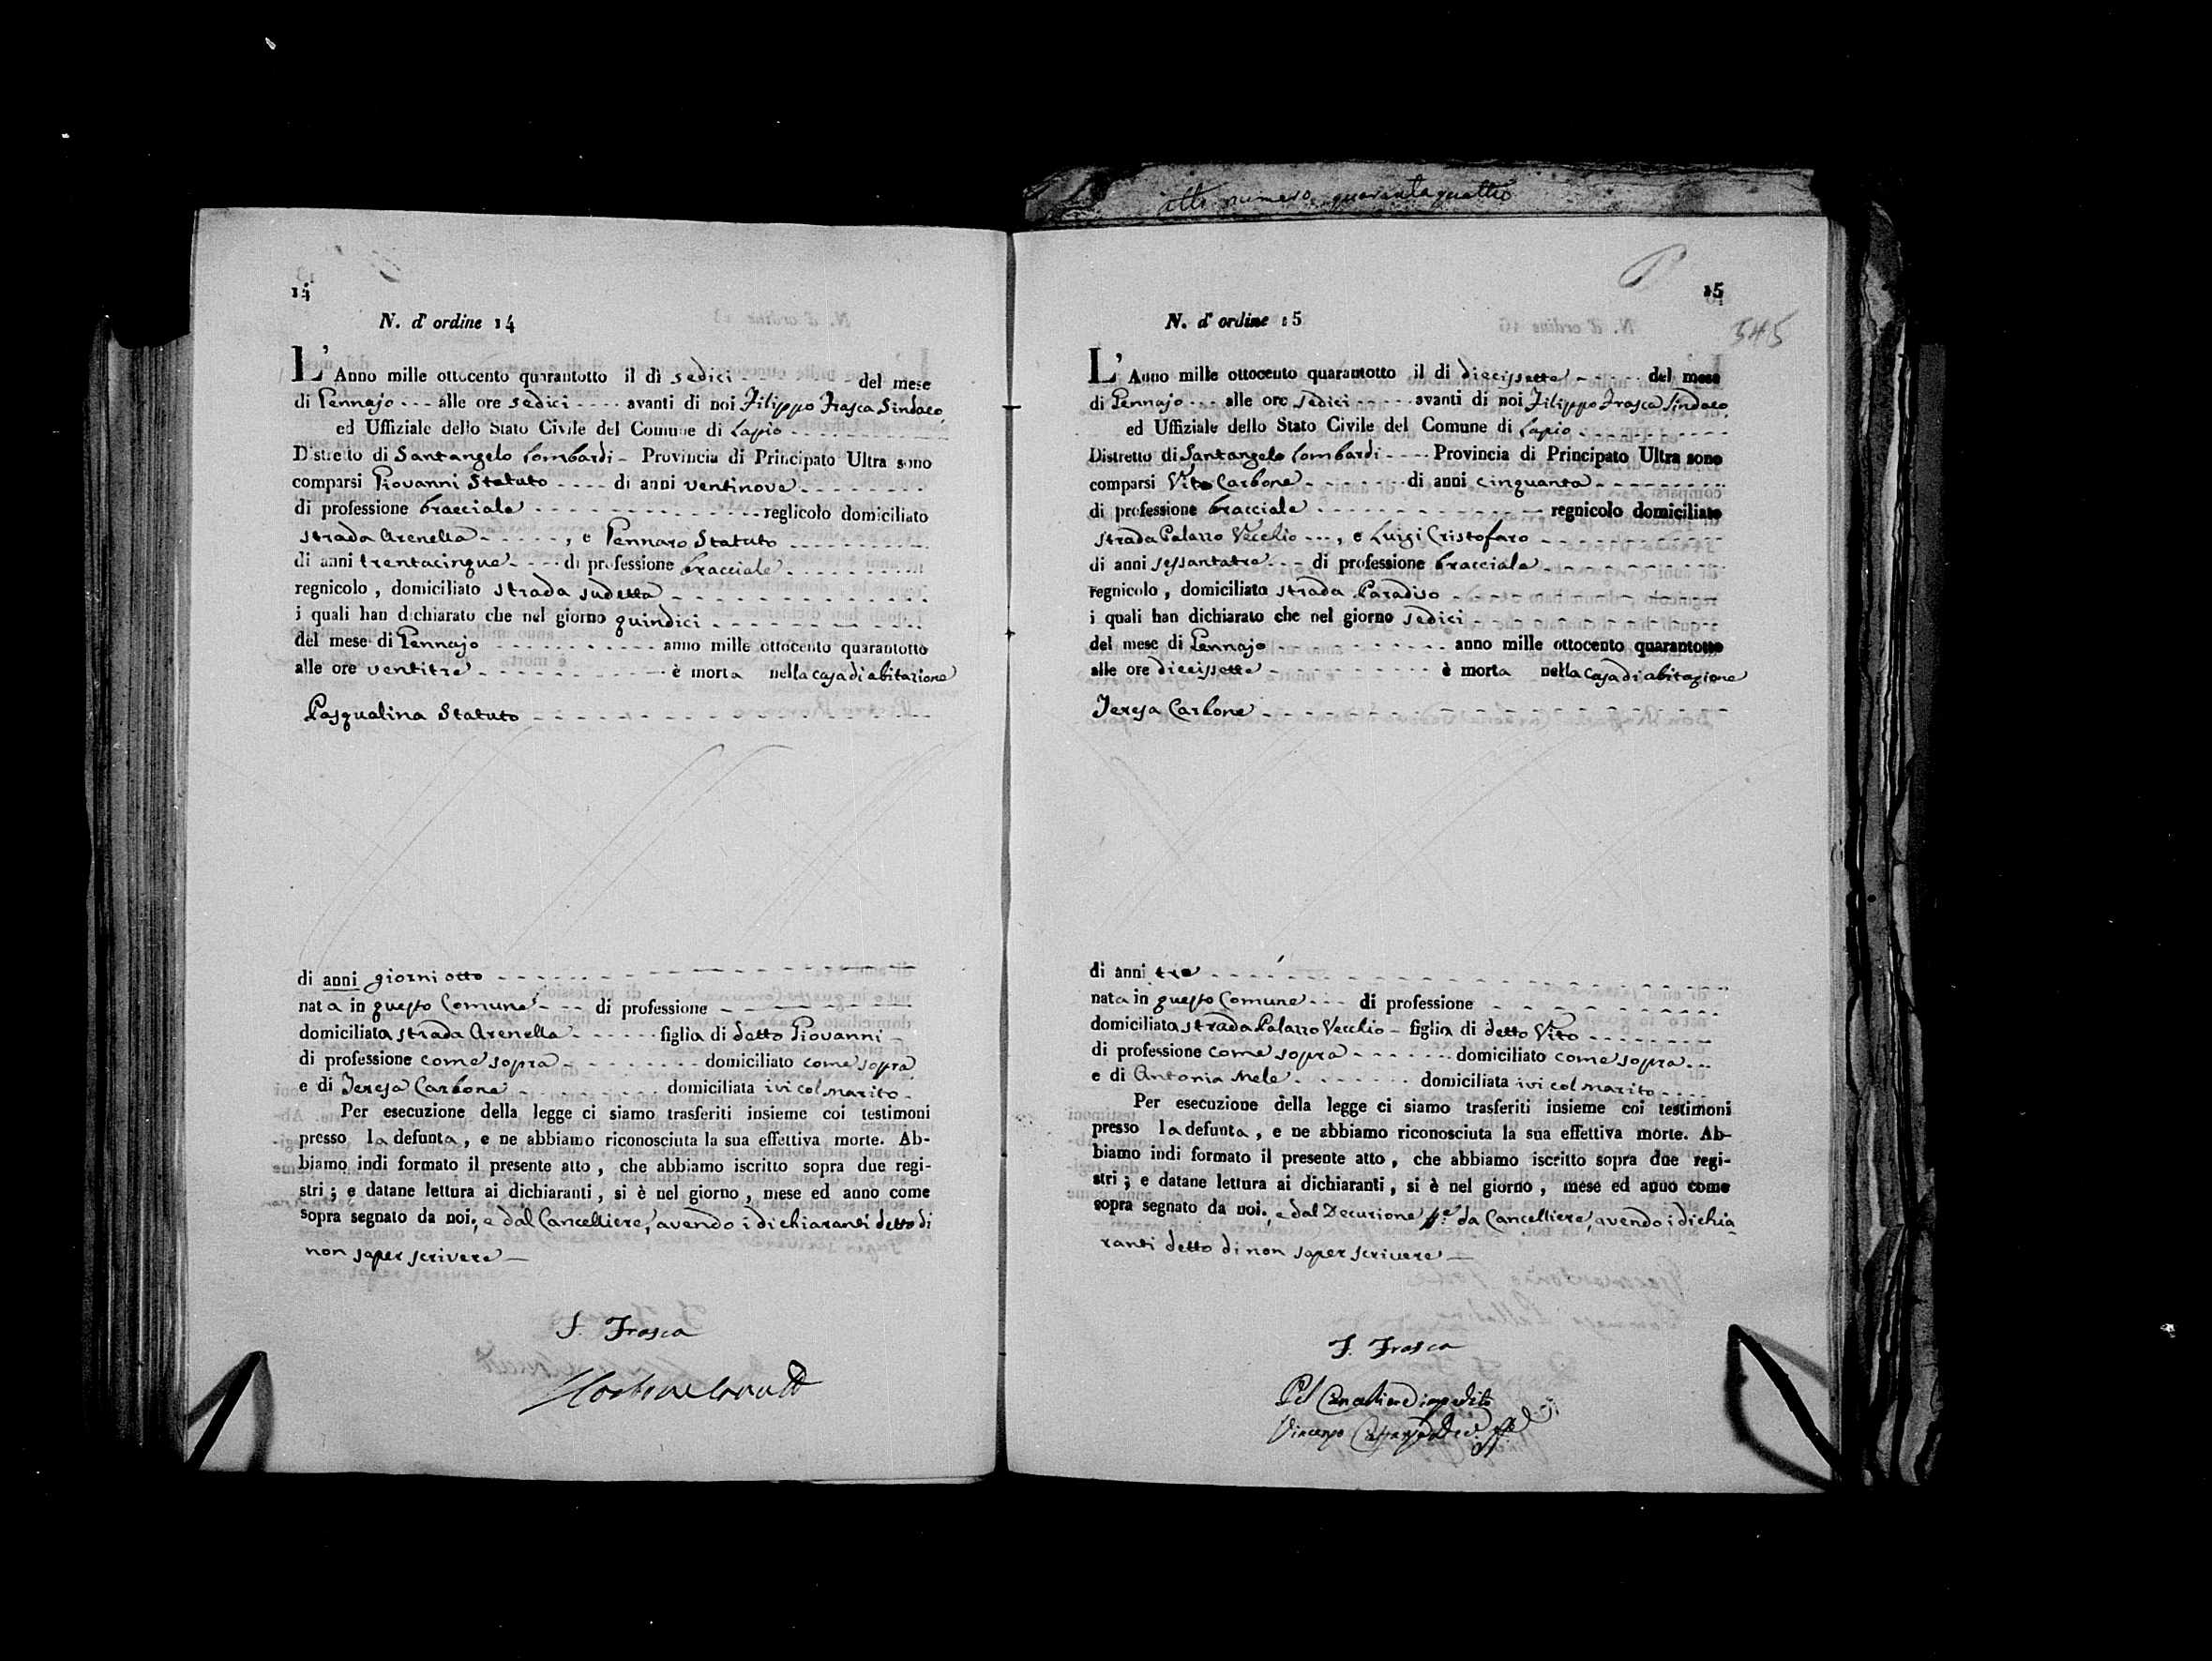 14
N. d' ordine 14
L' Anno mille ottocento quarantotto il dì sedici del mese
di Gennajo alle ore sedici avanti di noi Filippo Frasca Sindaco
ed Uffiziale dello Stato Civile del Comune di Lapio
Distretto di Santangelo Lombardi Provincia di Principato Ultra sono
comparsi Giovanni Statuto di anni ventinove
di professione bracciale reglicolo domiciliato
strada Arenella , e Gennaro Statuto
di anni trentacinque di professione bracciale
regnicolo , domiciliato strada sudetta
i quali han dichiarato che nel giorno quindici
del mese di Gennajo anno mille ottocento quarantotto
alle ore ventitre è morta nella casa di abitazione
Pasqualina Statuto
di anni giorni otto
nata in questo Comune di professione
domiciliata strada Arenella figlia di detto Giovanni
di professione come sopra domiciliato come sopra
e di Teresa Carbone domiciliata ivi col marito
Per esecuzione della legge ci siamo trasferiti insieme coi testimoni
presso la defunta , e ne abbiamo riconosciuta la sua effettiva morte. Ab-
biamo indi formato il presente atto , che abbiamo iscritto sopra due regi-
stri ; e datane lettura ai dichiaranti , si è nel giorno , mese ed anno come
sopra segnato da noi, e dal Cancelliere, avendo i dichiaranti detto di
non saper scrivere
F. Frasca
atto numero quarantaquattro
15
545
N. d' ordine 15
L' Anno mille ottocento quarantotto il di diecissette del mese
di Gennajo alle ore sedici avanti di noi Filippo Frasca Sindaco
ed Uffiziale dello Stato Civile del Comune di Lapio
Distretto di Santangelo Lombardi Provincia di Principato Ultra sono
comparsi Vito Carbone di anni cinquanta
di professione bracciale regnicolo domiciliato
strada Palazzo Vecchio , e Luigi Cristofaro
di anni sessantatre di professione bracciale
regnicolo , domiciliato strada Paradiso
i quali han dichiarato che nel giorno sedici
del mese di Gennajo anno mille ottocento quarantotto
alle ore diecissette è morta nella casa di abitazione
Teresa Carbone
di anni tre
nata in questo Comune di professione
domiciliata strada Palazzo Vecchio figlia di detto Vito
di professione come sopra domiciliato come sopra
e di Antonia Mele domiciliata ivi col marito
Per esecuzione della legge ci siamo trasferiti insieme coi testimoni
presso la defunta , e ne abbiamo riconosciuta la sua effettiva morte. Ab-
biamo indi formato il presente atto , che abbiamo iscritto sopra due regi-
stri ; e datane lettura ai dichiaranti , si è nel giorno , mese ed anno come
sopra segnato da noi, e dal Decurione da Cancelliere, avendo i dichia
ranti detto di non saper scrivere
F. Frasca
Pel Cancelliere impedito
Vincenzo